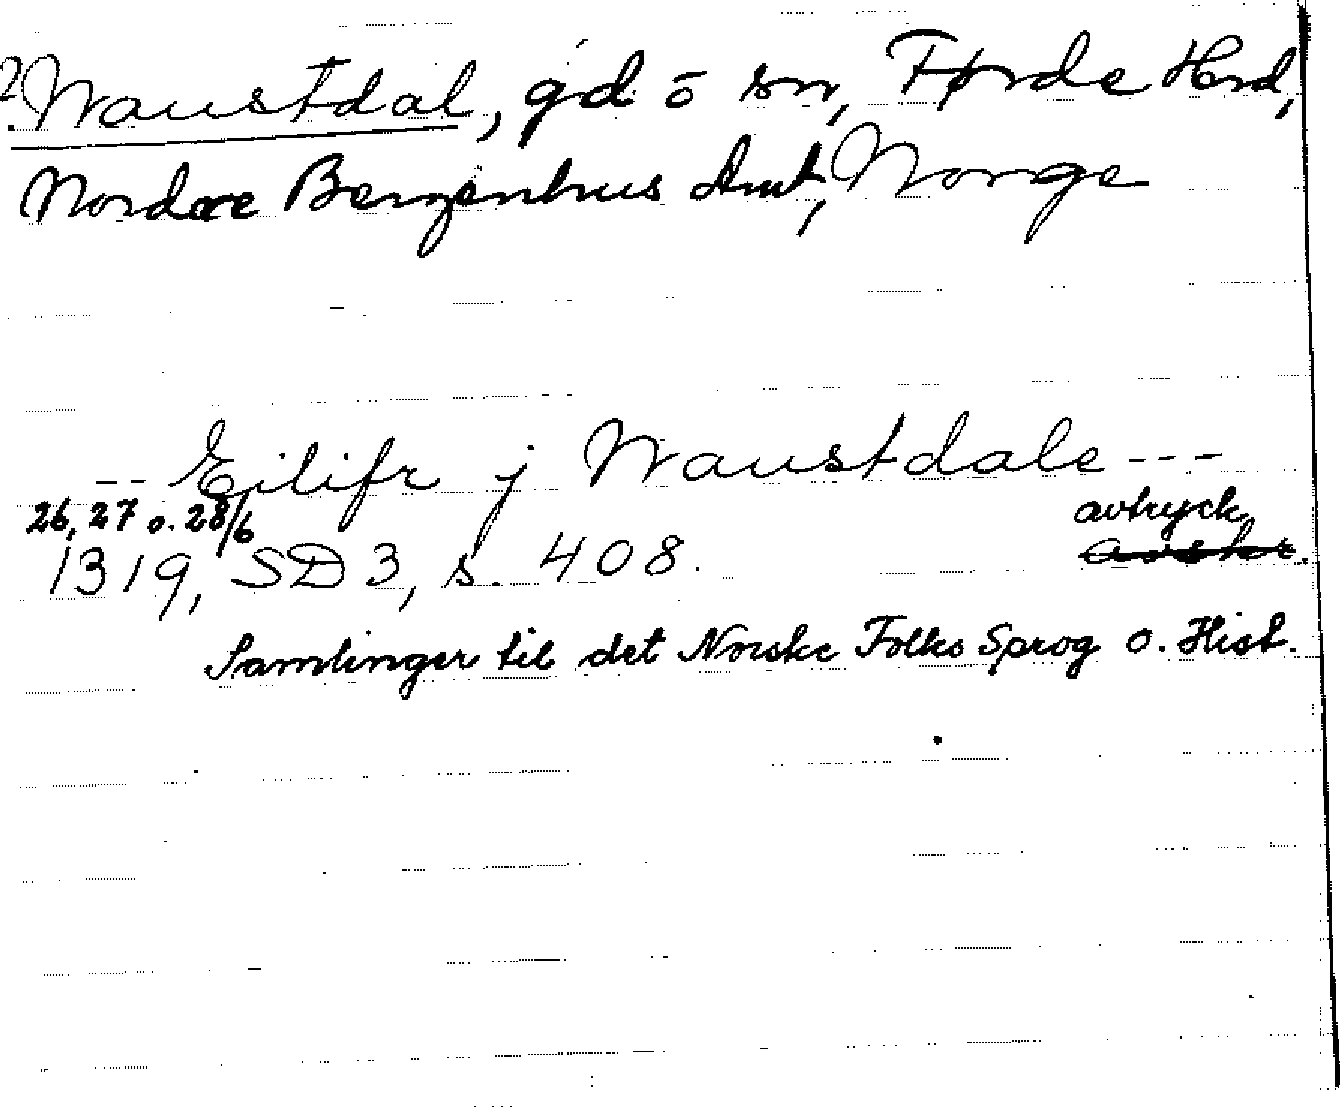 ? Naustdal, gd o sn, Førde Hrd,
Nordre Bergenhus Amt, Norge
-- Eilifr j Naustdale ---
26, 27 o. 28/6 avtryck
1319, SD 3, s. 408. avskr.
Samlinger til det Norske Folks Sprog o. Hist.